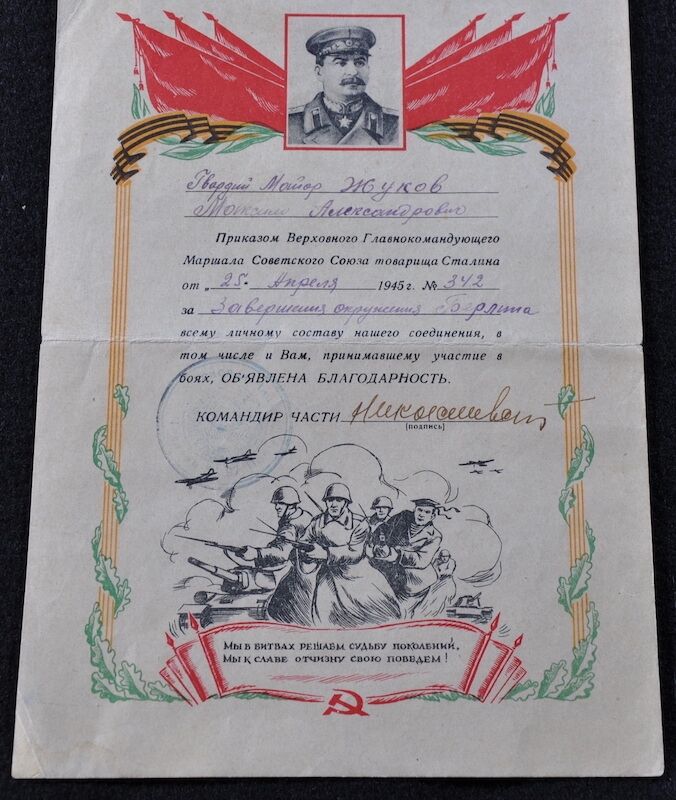 Гвардии Майор Жуков
Максим Александрович
Приказом Верховного Главнокомандующего
Маршала Советского Союза товарища Сталина
от „25" Апреля 1945 г. № 342
за Завершения окружения Берлина
всему личному составу нашего соединения, в
том числе и Вам, принимавшему участие в
боях, ОБ'ЯВЛЕНА БЛАГОДАРНОСТЬ.
КОМАНДИР ЧАСТИ
(подпись)
МЫ В БИТВАХ РЕШАЕМ СУДЬБУ ПОКОЛЕНИЙ,
МЫ К СЛАВЕ ОТЧИЗНУ СВОЮ ПОВЕДЕМ!